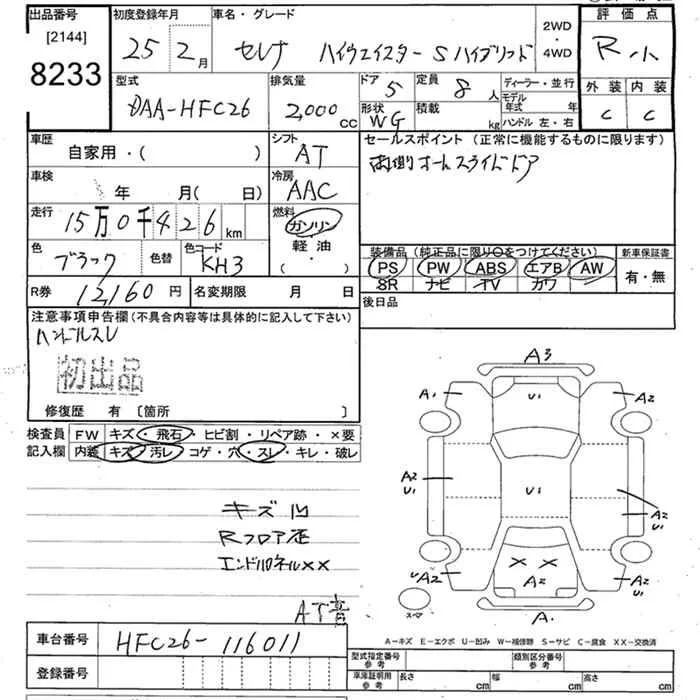 出品番号 初度登録年月 車名・グレード 評価点
[2144]
8233
25年2月 セレナ ハイウェイスターSハイブリッド 2WD・4WD R小
型式 排気量 ドア 定員 ディーラー・並行 外装 内装
DAA-HFC26 2,000CC 5 8人 モデル年式 年 C C
形状 積載
WG kg ハンドル 左・右
車歴 シフト セールスポイント(正常に機能するものに限ります)
自家用・( ) AT 両側オートスライドドア
車検 冷房
年 月(日) AAC
走行 燃料
15万0千426km ガソリン
軽油
( ・ )
色 色替 色コード 装備品(純正品に限り○をつけてください) 新車保証書
ブラック KH3 PS PW ABS エアB AW 有・無
SR ナビ TV カワ
R券 12,160円 名変期限 月 日 後日品
注意事項申告欄(不具合内容等は具体的に記入して下さい)
ハンドルスレ
初出品
修復歴 有 〔箇所 〕
検査員 FW キズ・飛石・ヒビ割・リペア跡・×要
記入欄 内装 キズ・汚レ・コゲ・穴・スレ・キレ・破レ
キズ凹
Rフロア歪
エンドパネル××
AT音
A3
A1 U1 A2
A2 U1 U1 A2
A2 U1
UA2 × × A2
A2
スマ A
A-キズ E-エクボ U-凹み W-補修跡 S-サビ C-腐食 XX-交換済
車台番号 HFC26-116011
登録番号
型式指定番号 参考 類別区分番号 参考
車庫証明用 参考 長さ cm 幅 cm 高さ cm